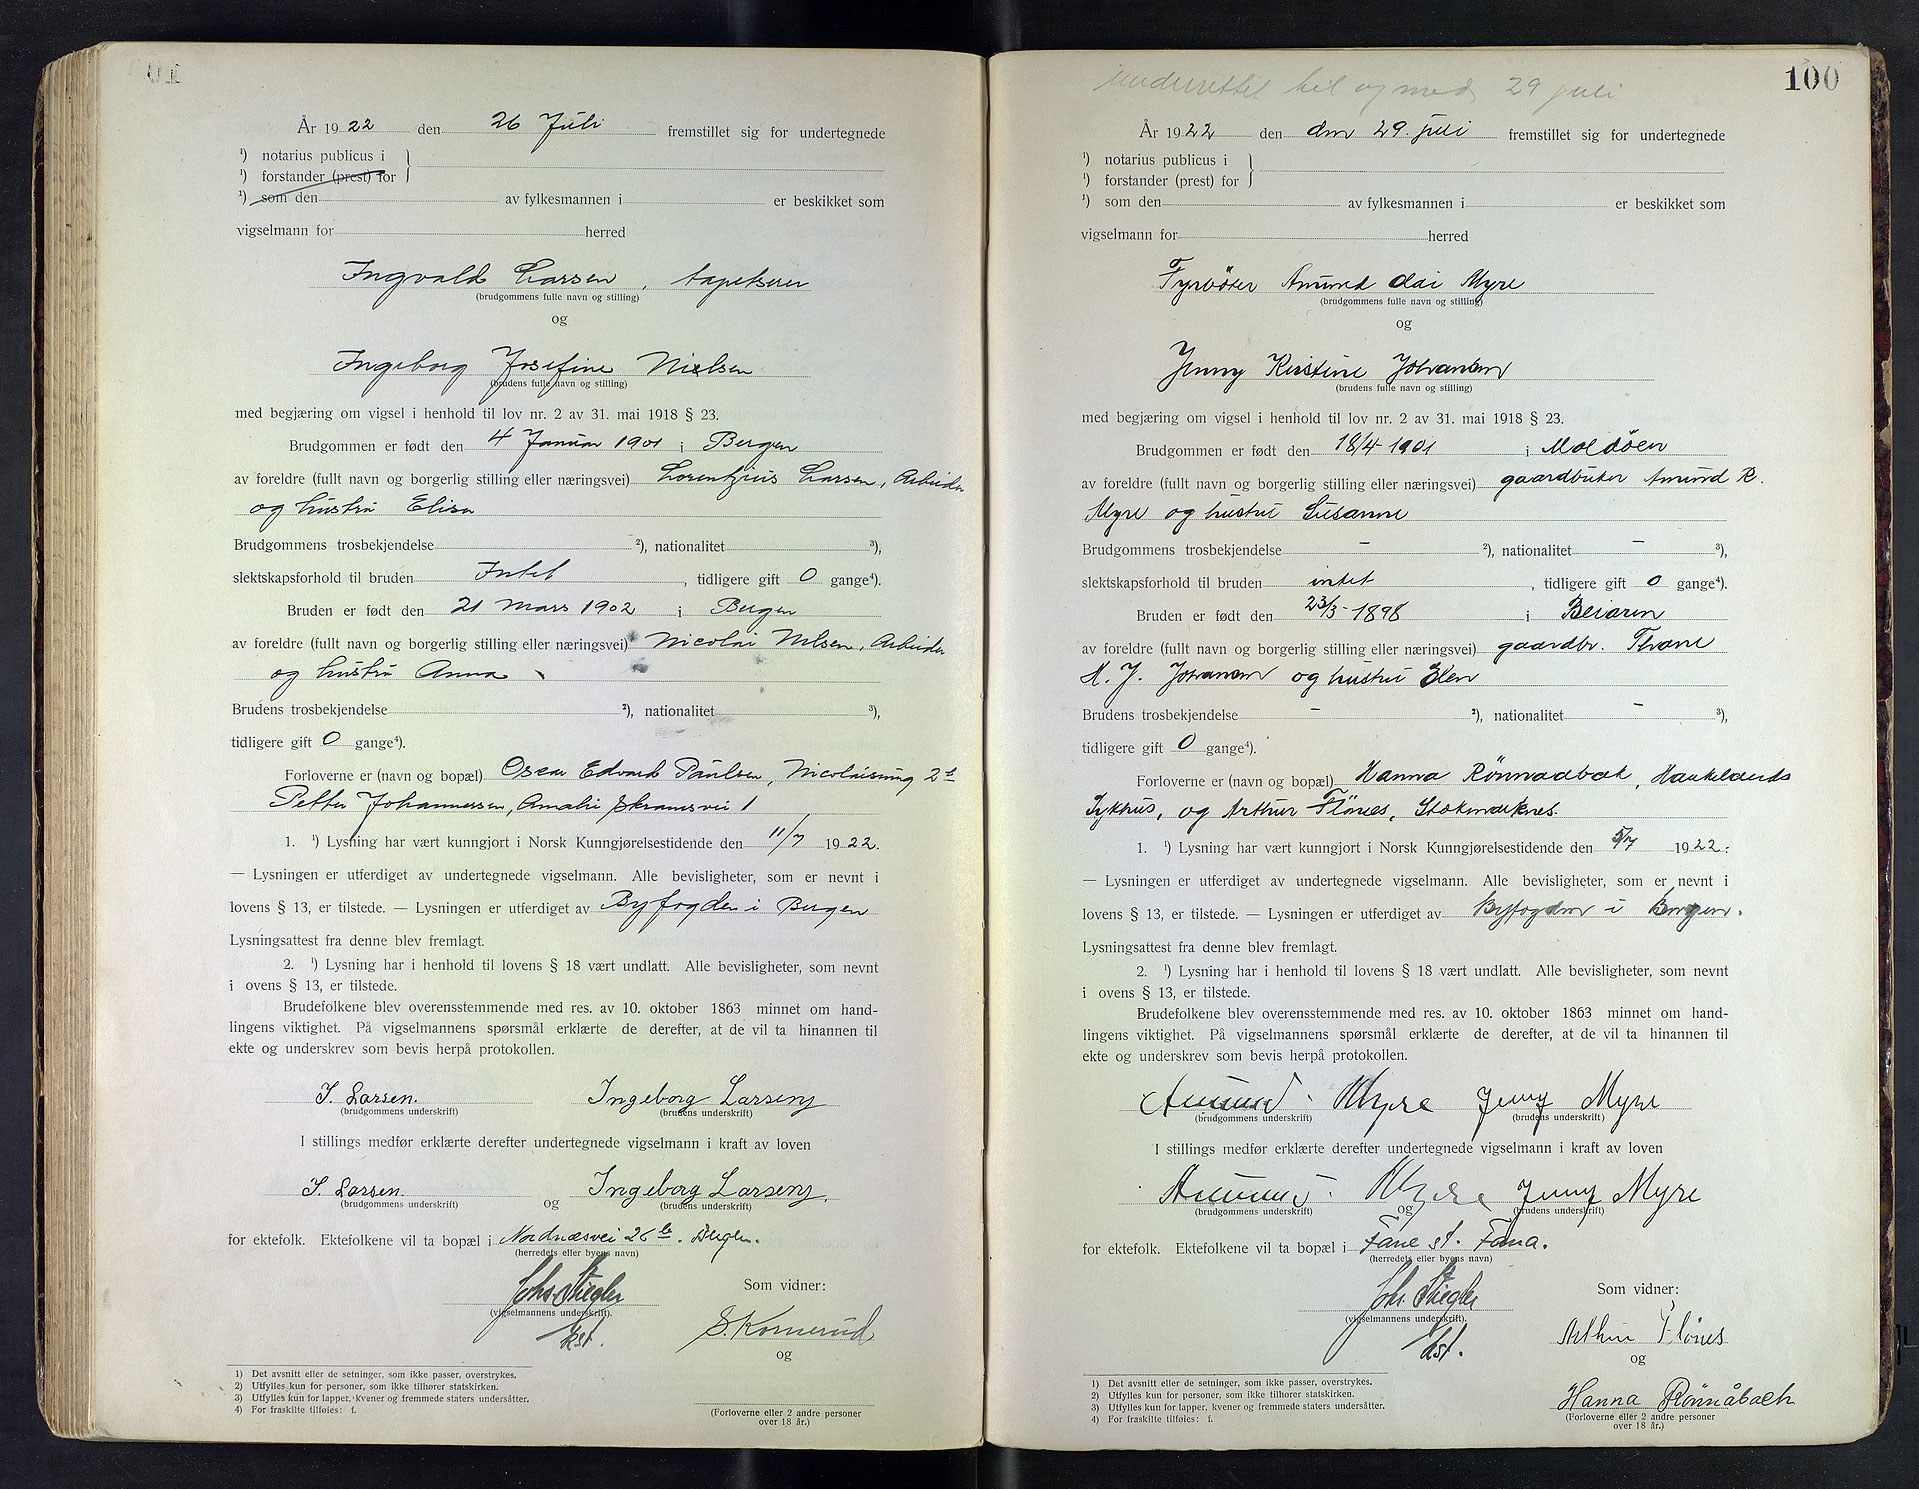 År 1922 den 26 Juli fremstillet sig for undertegnede
¹) notarius publicus i
¹) forstander (prest) for
¹) som den av fylkesmannen i er beskikket som
vigselmann for herred
Ingvald Larsen, tapetserer
(brudgommens fulle navn og stilling)
og
Ingeborg Josefine Nielsen
(brudens fulle navn og stilling)
med begjæring om vigsel i henhold til lov nr. 2 av 31. mai 1918 § 23.
Brudgommen er født den 4 Januar 1901 i Bergen
av foreldre (fullt navn og borgerlig stilling eller næringsvei) Lorentzius Larsen, Arbeider
og hustru Elisa
Brudgommens trosbekjendelse ²), nationalitet ³),
slektskapsforhold til bruden Intet, tidligere gift 0 gange⁴).
Bruden er født den 21 Mars 1902 i Bergen
av foreldre (fullt navn og borgerlig stilling eller næringsvei) Nicolai Nilsen, Arbeider
og hustru Anna
Brudens trosbekjendelse ²), nationalitet ³),
tidligere gift 0 gange⁴).
Forloverne er (navn og bopæl) Oscar Edvard Paulsen, Nicolaismug 2
Petter Johannessen, Amalie Skramsvei 1
1. ¹) Lysning har vært kunngjort i Norsk Kunngjørelsestidende den 11/7 1922.
— Lysningen er utferdiget av undertegnede vigselmann. Alle bevisligheter, som er nevnt i
lovens § 13, er tilstede. — Lysningen er utferdiget av Byfogden i Bergen
Lysningsattest fra denne blev fremlagt.
2. ¹) Lysning har i henhold til lovens § 18 vært undlatt. Alle bevisligheter, som nevnt
i ovens § 13, er tilstede.
Brudefolkene blev overensstemmende med res. av 10. oktober 1863 minnet om hand-
lingens viktighet. På vigselmannens spørsmål erklærte de derefter, at de vil ta hinannen til
ekte og underskrev som bevis herpå protokollen.
I. Larsen. Ingeborg Larsen
(brudgommens underskrift) (brudens underskrift)
I stillings medfør erklærte derefter undertegnede vigselmann i kraft av loven
I. Larsen. og Ingeborg Larsen.
(brudgommens underskrift) (brudens underskrift)
for ektefolk. Ektefolkene vil ta bopæl i Nordnæsvei 26
(herredets eller byens navn)
Som vidner:
Johs. Stiegler
(vigselmannens underskrift).
kst.
S. Kornerud
og
1) Det avsnitt eller de setninger, som ikke passer, overstrykes.
2) Utfylles kun for personer, som ikke tilhører statskirken.
3) Utfylles kun for lapper, kvener og fremmede staters undersåtter.
4) For fraskilte tilføies: f.
(Forloverne eller 2 andre personer
over 18 år.)
underrettet til og med 29 juli
100
År 1922 den den 29. juli fremstillet sig for undertegnede
¹) notarius publicus i
¹) forstander (prest) for
¹) som den av fylkesmannen i er beskikket som
vigselmann for herred
Fyrbøter Amund Odai Myre
(brudgommens fulle navn og stilling)
og
Jenny Kirstine Johansen
(brudens fulle navn og stilling)
med begjæring om vigsel i henhold til lov nr. 2 av 31. mai 1918 § 23.
Brudgommen er født den 18/4-1901 i Moldøen
av foreldre (fullt navn og borgerlig stilling eller næringsvei) gaardbruker Amund R.
Myre og hustru Susanne
Brudgommens trosbekjendelse – ²), nationalitet – ³),
slektskapsforhold til bruden intet, tidligere gift 0 gange⁴).
Bruden er født den 23/3-1898 i Beiaren
av foreldre (fullt navn og borgerlig stilling eller næringsvei) gaardbr. Thrane
M. J. Johansen og hustru Elen
Brudens trosbekjendelse – ²), nationalitet – ³),
tidligere gift 0 gange⁴).
Forloverne er (navn og bopæl) Hanna Rønnaabak, Haukelands
Sykhus, og Arthur Flönes, Stokmarknes.
1. ¹) Lysning har vært kunngjort i Norsk Kunngjørelsestidende den 5/7 1922.
— Lysningen er utferdiget av undertegnede vigselmann. Alle bevisligheter, som er nevnt i
lovens § 13, er tilstede. — Lysningen er utferdiget av Byfogden i Bergen.
Lysningsattest fra denne blev fremlagt.
2. ¹) Lysning har i henhold til lovens § 18 vært undlatt. Alle bevisligheter, som nevnt
i ovens § 13, er tilstede.
Brudefolkene blev overensstemmende med res. av 10. oktober 1863 minnet om hand-
lingens viktighet. På vigselmannens spørsmål erklærte de derefter, at de vil ta hinannen til
ekte og underskrev som bevis herpå protokollen.
Amund Myre Jenny Myre
(brudgommens underskrift) (brudens underskrift)
I stillings medfør erklærte derefter undertegnede vigselmann i kraft av loven
Amund Myre og Jenny Myre
(brudgommens underskrift) (brudens underskrift)
for ektefolk. Ektefolkene vil ta bopæl i Fane st. Fana.
(herredets eller byens navn)
Som vidner:
Johs. Stiegler
(vigselmannens underskrift).
kst.
Arthur Flönes
og
Hanna Rønnåbach
1) Det avsnitt eller de setninger, som ikke passer, overstrykes.
2) Utfylles kun for personer, som ikke tilhører statskirken.
3) Utfylles kun for lapper, kvener og fremmede staters undersåtter.
4) For fraskilte tilføies: f.
(Forloverne eller 2 andre personer
over 18 år.)